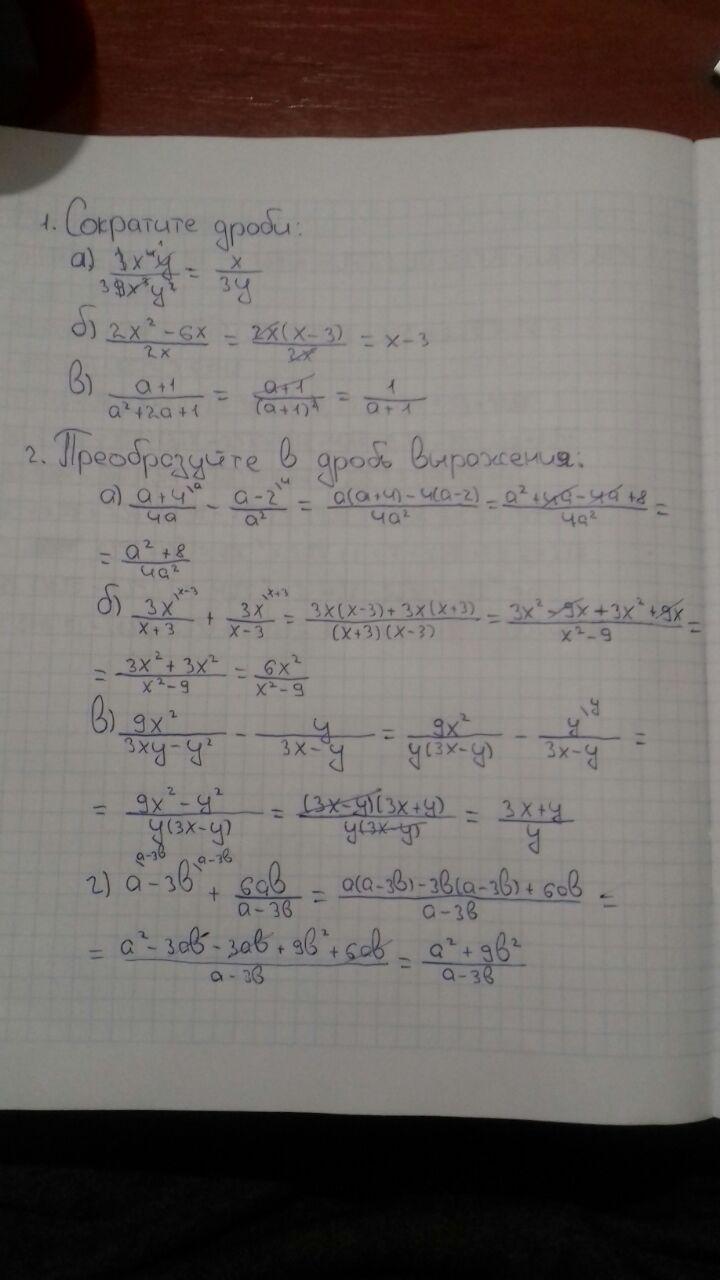 1. Сократите дроби:
а) 3x⁴y / 9x³y² = x / 3y
б) 2x² - 6x / 2x = 2x(x-3) / 2x = x-3
в) a+1 / a²+2a+1 = a+1 / (a+1)² = 1 / a+1
2. Преобразуйте в дробь выражения:
а) a+4\a / 4a - a-2\4 / a² = a(a+4)-4(a-2) / 4a² = a²+4a-4a+8 / 4a² =
= a²+8 / 4a²
б) 3x\x-3 / x+3 + 3x\x+3 / x-3 = 3x(x-3)+3x(x+3) / (x+3)(x-3) = 3x²-9x+3x²+9x / x²-9 =
= 3x²+3x² / x²-9 = 6x² / x²-9
в) 9x² / 3xy-y² - y / 3x-y = 9x² / y(3x-y) - y\y / 3x-y =
= 9x²-y² / y(3x-y) = (3x-y)(3x+y) / y(3x-y) = 3x+y / y
г) a\a-3в - 3в\a-3в + 6aв / a-3в = a(a-3в)-3в(a-3в)+6aв / a-3в =
= a²-3aв-3aв+9в²+6aв / a-3в = a²+9в² / a-3в